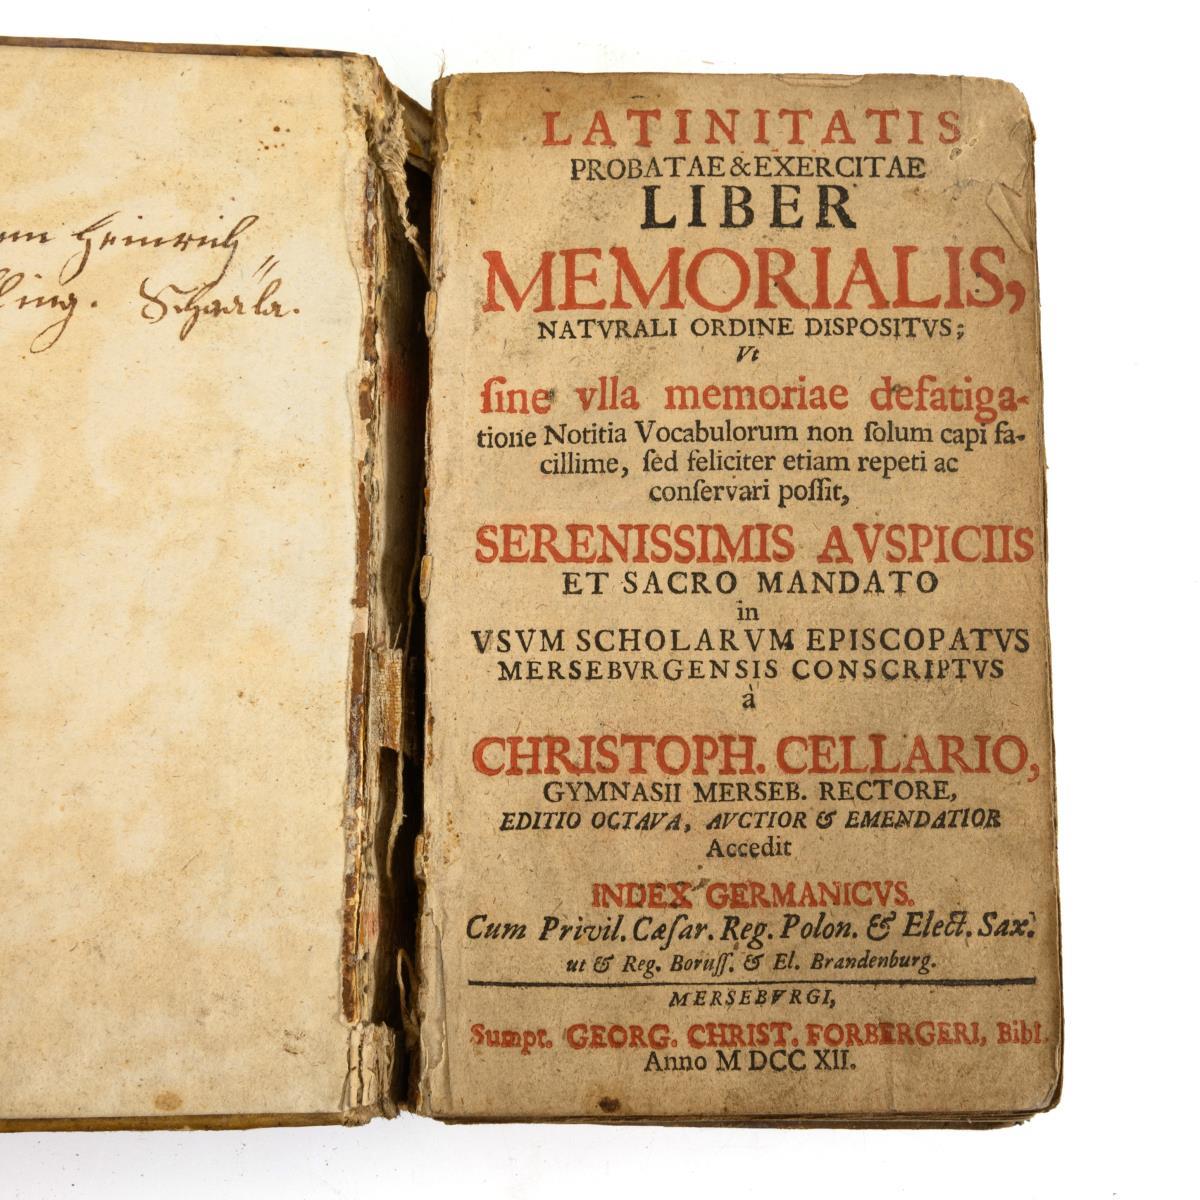 Heinrich
Schaala.
LATINITATIS
PROBATAE & EXERCITAE
LIBER
MEMORIALIS,
NATVRALI ORDINE DISPOSITVS;
Vt
ſine vlla memoriae defatiga-
tione Notitia Vocabulorum non ſolum capi fa-
cillime, ſed feliciter etiam repeti ac
conſervari poſſit,
SERENISSIMIS AVSPICIIS
ET SACRO MANDATO
in
VSVM SCHOLARVM EPISCOPATVS
MERSEBVRGENSIS CONSCRIPTVS
à
CHRISTOPH. CELLARIO,
GYMNASII MERSEB. RECTORE,
EDITIO OCTAVA, AVCTIOR & EMENDATIOR
Accedit
INDEX GERMANICVS.
Cum Privil. Cæſar. Reg. Polon. & Elect. Sax.
ut & Reg. Boruſſ. & El. Brandenburg.
MERSEBVRGI,
Sumpt. GEORG. CHRIST. FORBERGERI, Bibl.
Anno M DCC XII.